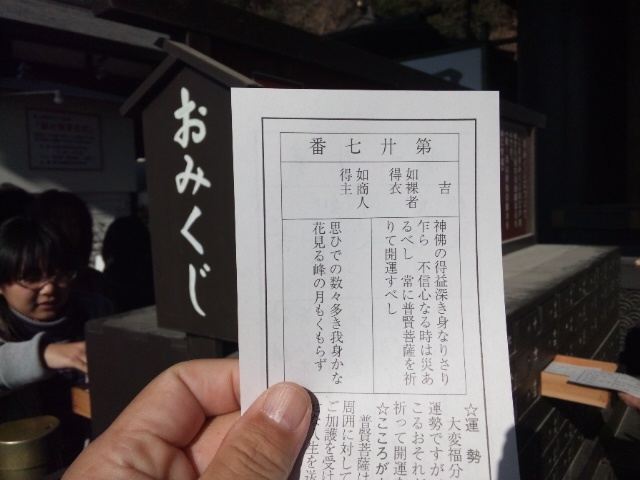 おみくじ
第廿七番
吉
如裸者
得衣
如商人
得主
神佛の得益深き身なりさり
乍ら 不信心なる時は災あ
るべし 常に普賢菩薩を祈
りて開運すべし
思ひでの数々多き我身かな
花見る峰の月もくもらず
☆運勢
大変福分
運勢ですが
こるおそれ
祈って開運
☆こころが
普賢菩薩は
周囲に対して
ご加護を受け
人生を送